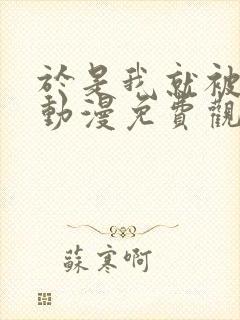 於是我就被
動漫免費觀
蘇寒啊